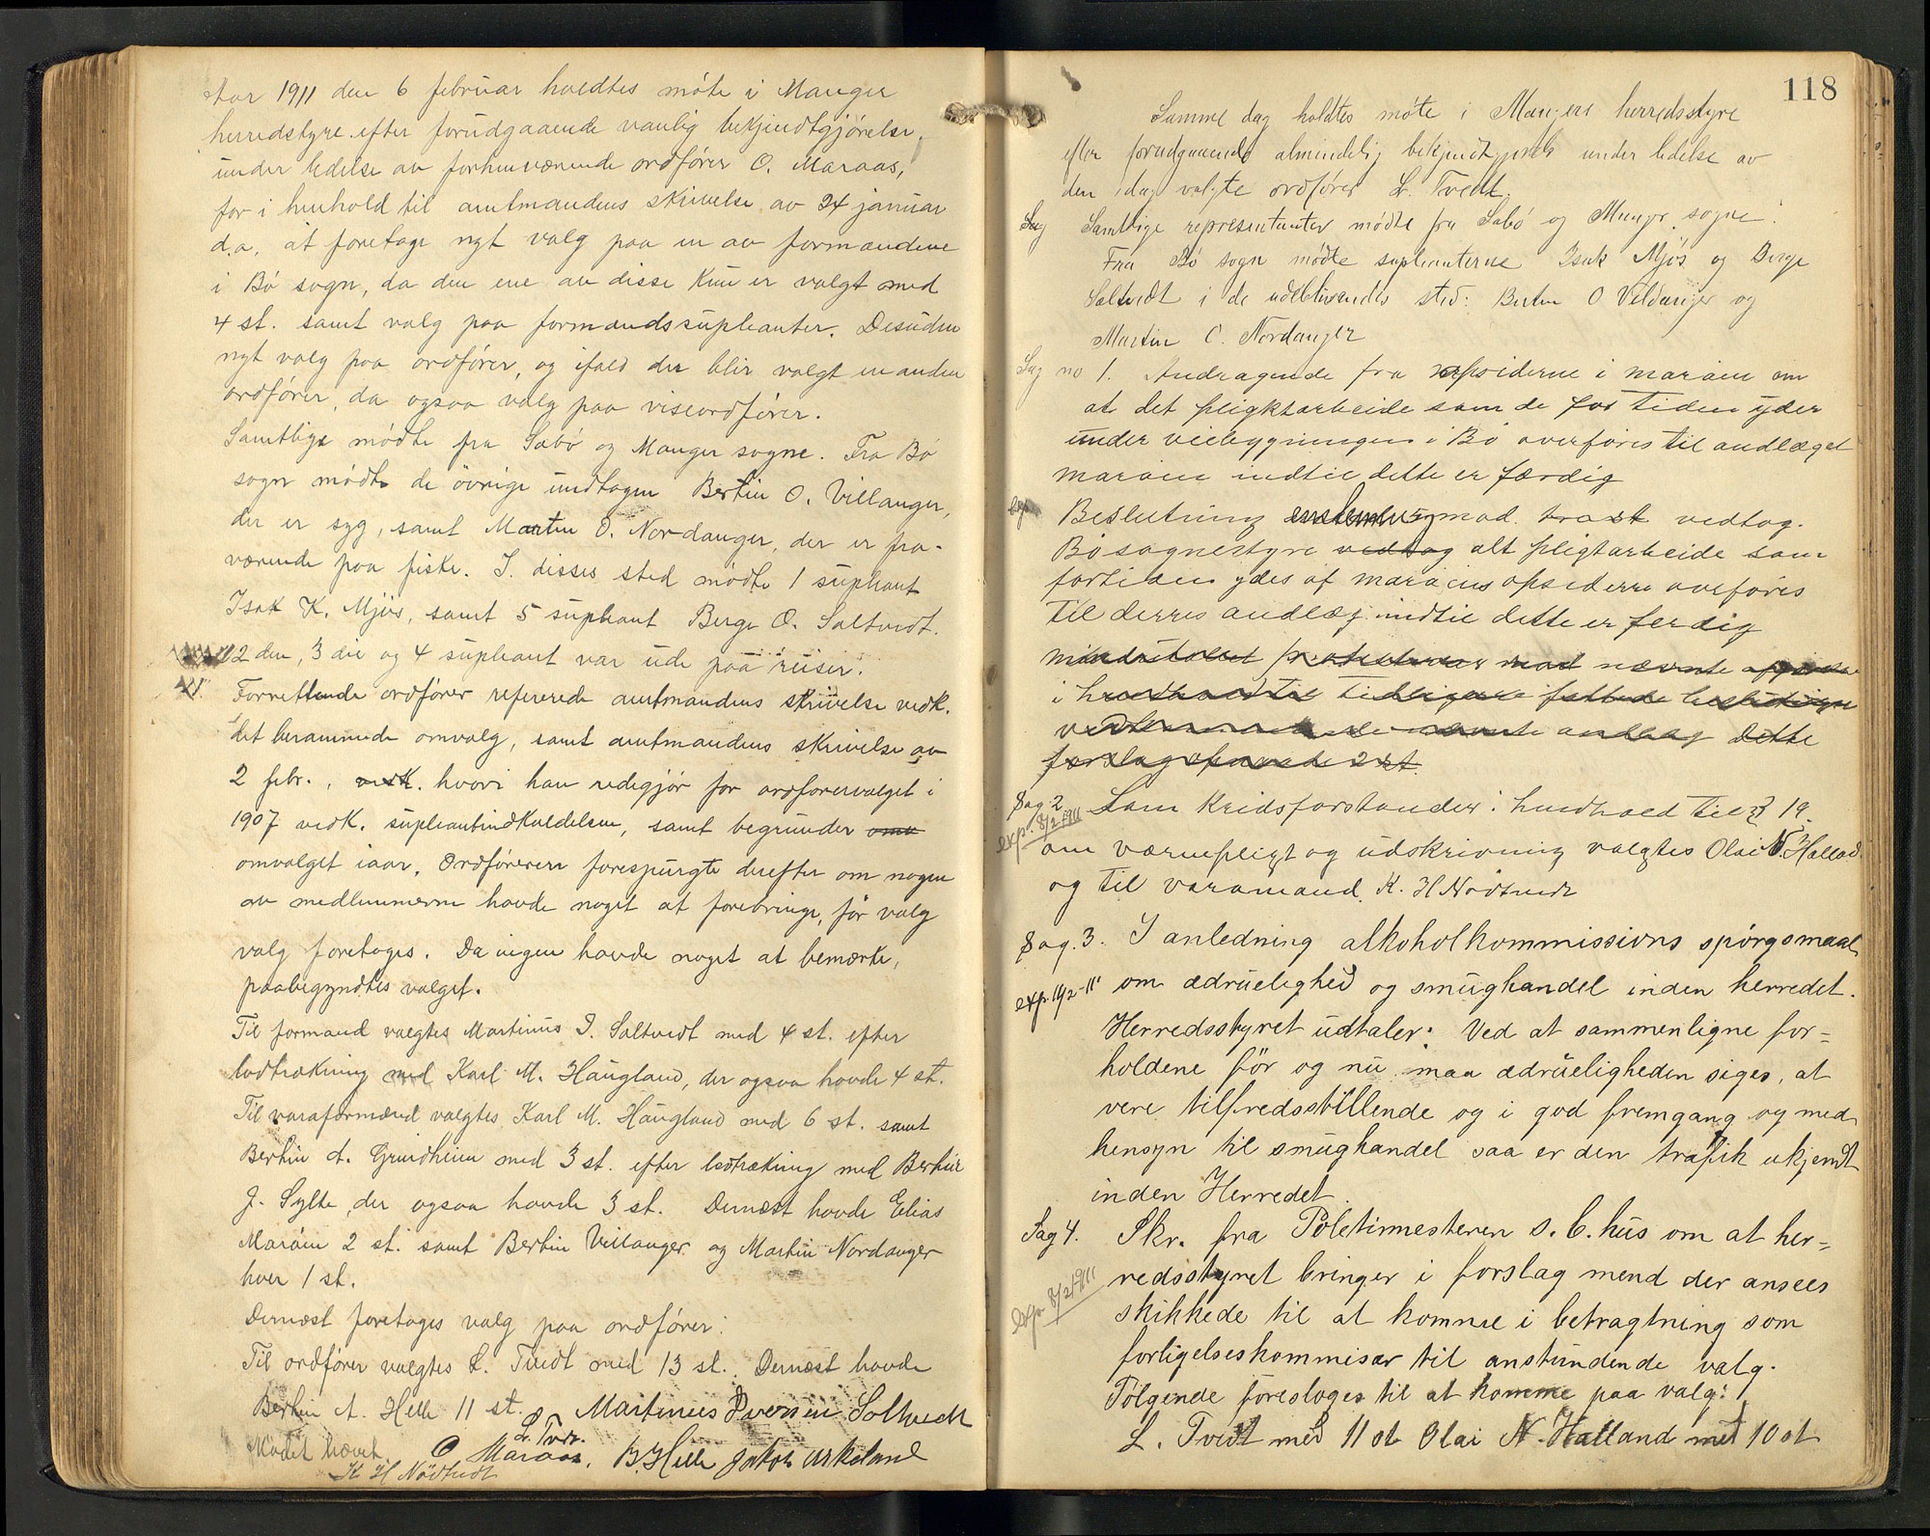 Aar 1911 den 6 februar holdtes möte i Manger
herredstyre efter forudgaaende vanlig bekjendtgjörelse,
under ledelse av forhenværende ordförer O. Maraas,
for i henhold til amtmandens skrivelse av 24 januar
d.a. at foretage nyt valg paa en av formændene
i Bö sogn, da den ene av disse kun er valgt med
4 st. samt valg paa formandssupleanter. Desuden
nyt valg paa ordförer, og ifald der blir valgt en anden
ordförer, da ogsaa valg paa viseordförer.
Samtlige mödte fra Sæbö og Manger sogne. Fra Bö
sogn mödte de övrige undtagen Bertin O. Villanger,
der er syg, samt Martin O. Nordanger, der er fra-
værende paa fiske. I disses sted mödte 1 supleant
Isak K. Mjös, samt 5 supleant Berge O. Saltvedt.
2 den, 3 die og 4 supleant var ude paa reiser.
Forrettende ordförer refererede amtmandens skrivelse vedk.
det berammede omvalg, samt amtmandens skrivelse av
2 febr., vedk. hvori han redegjör for ordförervalget i
1907 vedk. supleantindkaldelsen, samt begrunder omv
omvalget iaar. Ordföreren forespurgte derefter om nogen
av medlemmerne havde noget at forebringe, för valg
valg foretages. Da ingen havde noget at bemærke,
paabegyndtes valget.
Til formand valgtes Martinus I. Saltvedt med 4 st. efter
lodtrækning med Karl M. Haugland, der ogsaa havde 4 st.
Til varaformænd valgtes Karl M. Haugland med 6 st. samt
Bertin A. Grindheim med 3 st. efter lodtrækning med Bertin
J. Sylte, der ogsaa havde 3 st. Dernæst havde Elias
Maröen 2 st. samt Bertin Villanger og Martin Nordanger
hver 1 st.
Dernæst foretoges valg paa ordförer:
Til ordförer valgtes L. Tvedt med 13 st. Dernæst havde
Bertin A. Helle 11 st. Martinus Iversen Saltvedt
Mödet hævet. L. Tvedt
O Maraas. B. Helle Jakob Urkeland
K H Nödtvedt
118
Samme dag holdtes möte i Mangers herredsstyre
efter forudgaaende almindelig bekjendtgjörelse under ledelse av
den idag valgte ordförer L. Tvedt.
Sag Samtlige representanter mödte fra Sæbö og Manger sogne.
Fra Bö sogn mödte supleanterne Isak Mjös og Berge
Saltvedt i de udeblivendes sted: Bertin O Veldanger og
Martin C. Nordanger
Sag no 1. Andragende fra opsiderne i maröen om
at det pligktarbeide som de for tiden yder
under veiebygningen i Bö overföres til andlæget
maröen indtil dette er færdig
Beslutning enstemmig mod vedtog.
Bö sognestyre vedtog alt pligtarbeide som
fortiden ydes af maröens opsiderre overföres
til derres andlæg indtil dette er ferdig
mindretallet protesterer mod nævnte
i henhold til tidligere fattede beslutning
nævnte andrag dette
2 st.
Sag 2 Som Kridsforstander i hendhold til § 19.
exp. 8/2 1911
om værnepligt og udskrivning valgtes Olai N. Halland
og til varamand. K. H Nödtvedt
Sag. 3. I anledning alkoholkommissions spörgsmaal
exp. 11/2-11 om ædruelighed og smughandel inden herredet.
Herredsstyret udtaler: Ved at sammenligne for-
holdene för og nu maa ædrueligheden siges, at
vere tilfredsstillende og i god fremgang og med
hensyn til smughandel saa er den trafik ukjendt
inden Herredet.
Sag 4. Skr. fra Poletimesteren s. B. hus om at her-
redsstyret bringer i forslag mend der ansees
exp 8/2 1911
skikkede til at komme i betragtning som
forligelseskommisær til anstundende valg.
Fölgende foresloges til at komme paa valg:
L. Tvedt med 11 st Olai N. Halland met 10 st